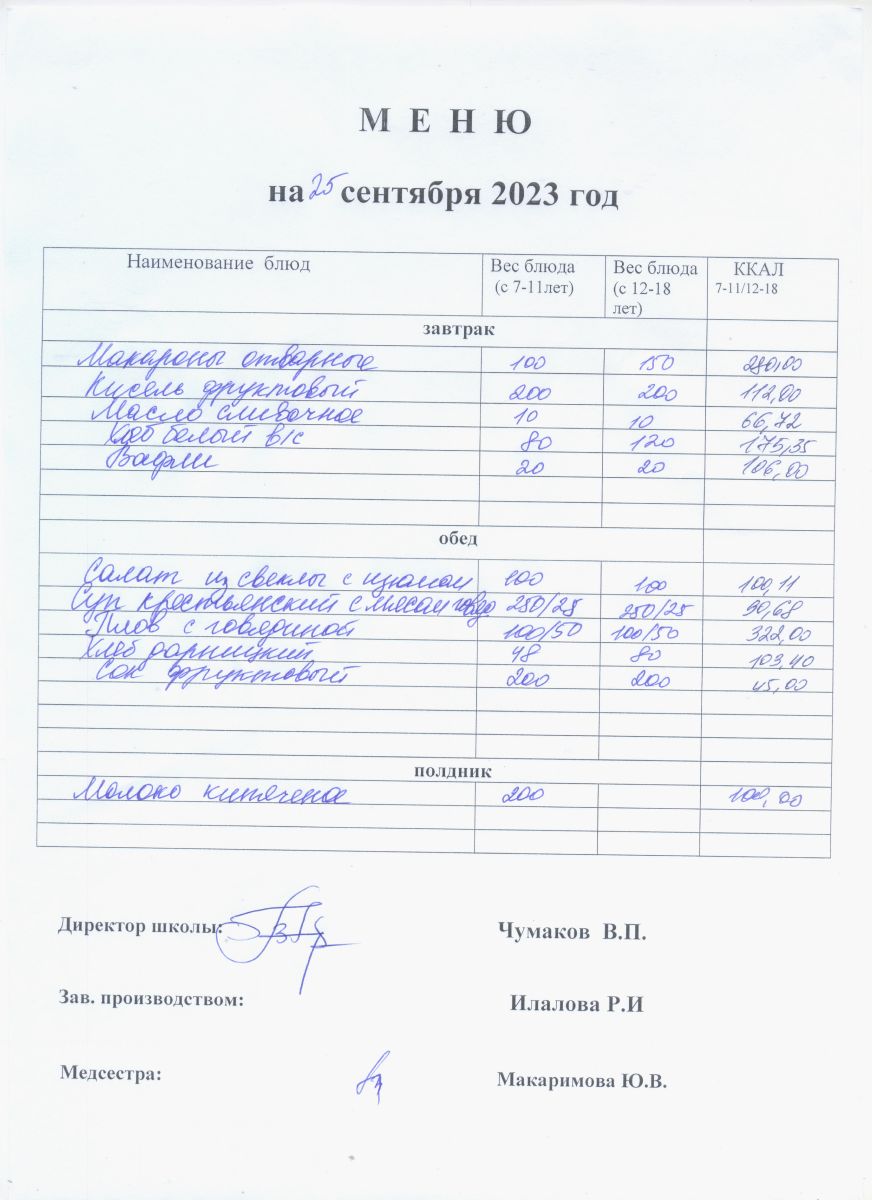 МЕНЮ
на 25 сентября 2023 год
Наименование блюд Вес блюда (с 7-11лет) Вес блюда (с 12-18 лет) ККАЛ 7-11/12-18
завтрак
Макароны отварные 100 150 280,00
Кисель фруктовый 200 200 112,00
Масло сливочное 10 10 66,72
Хлеб белый в/с 80 120 175,35
Вафли 20 20 106,00
обед
Салат из свеклы с изюмом 100 100 100,11
Суп крестьянский с мясом 250/25 250/25 90,68
Плов с говядиной 100/50 100/50 322,00
Хлеб дарницкий 48 80 103,40
Сок фруктовый 200 200 45,00
полдник
Молоко кипяченое 200 100,00
Директор школы: Чумаков В.П.
Зав. производством: Илалова Р.И
Медсестра: Макаримова Ю.В.